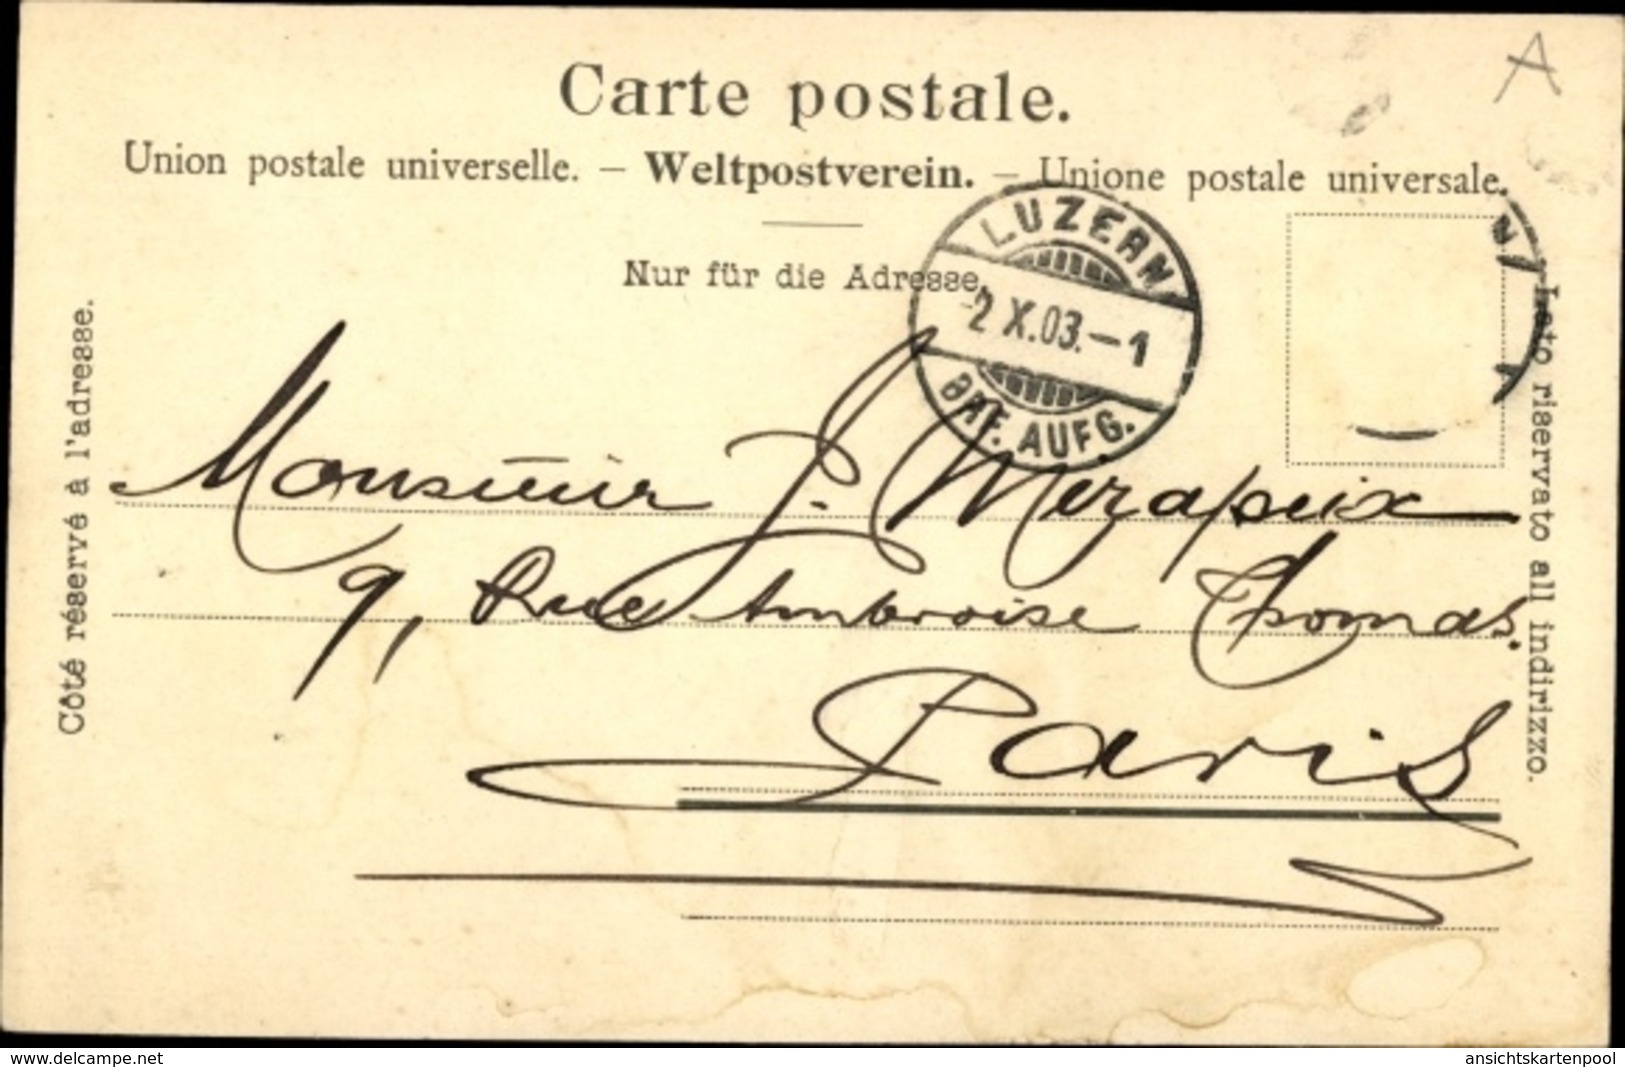 A
Carte postale.
Union postale universelle. — Weltpostverein. — Unione postale universale.
Nur für die Adresse.
LUZERN
-2 X.03.-1
BRF. AUFG.
Côté réservé à l'adresse.
Lato riservato all indirizzo.
Monsieur P. Merapeix
9, Rue Ambroise Thomas.
Paris
www.delcampe.net
ansichtskartenpool